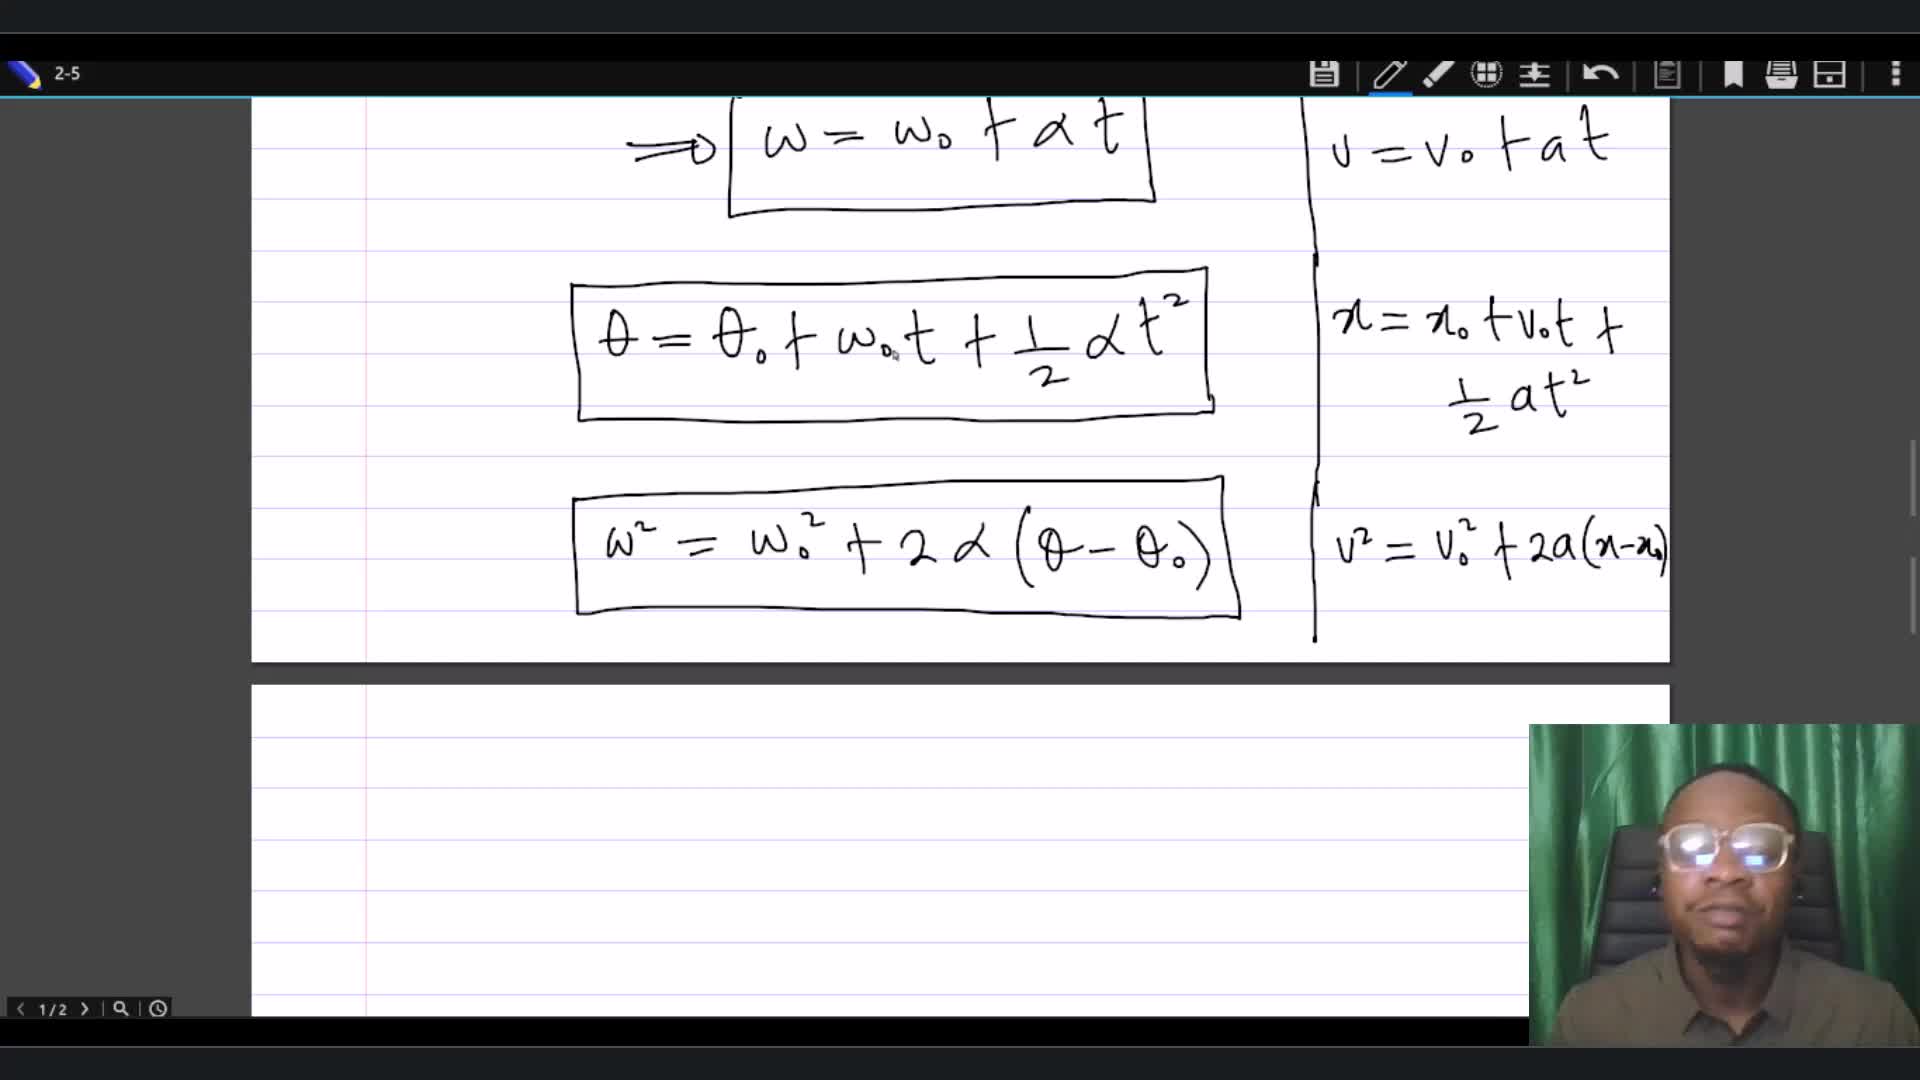 2-5
⇒ ω = ω₀ + αt
v = v₀ + at
θ = θ₀ + ω₀t + 1/2 αt²
x = x₀ + v₀t +
1/2 at²
ω² = ω₀² + 2α(θ - θ₀)
v² = v₀² + 2a(x-x₀)
1/2